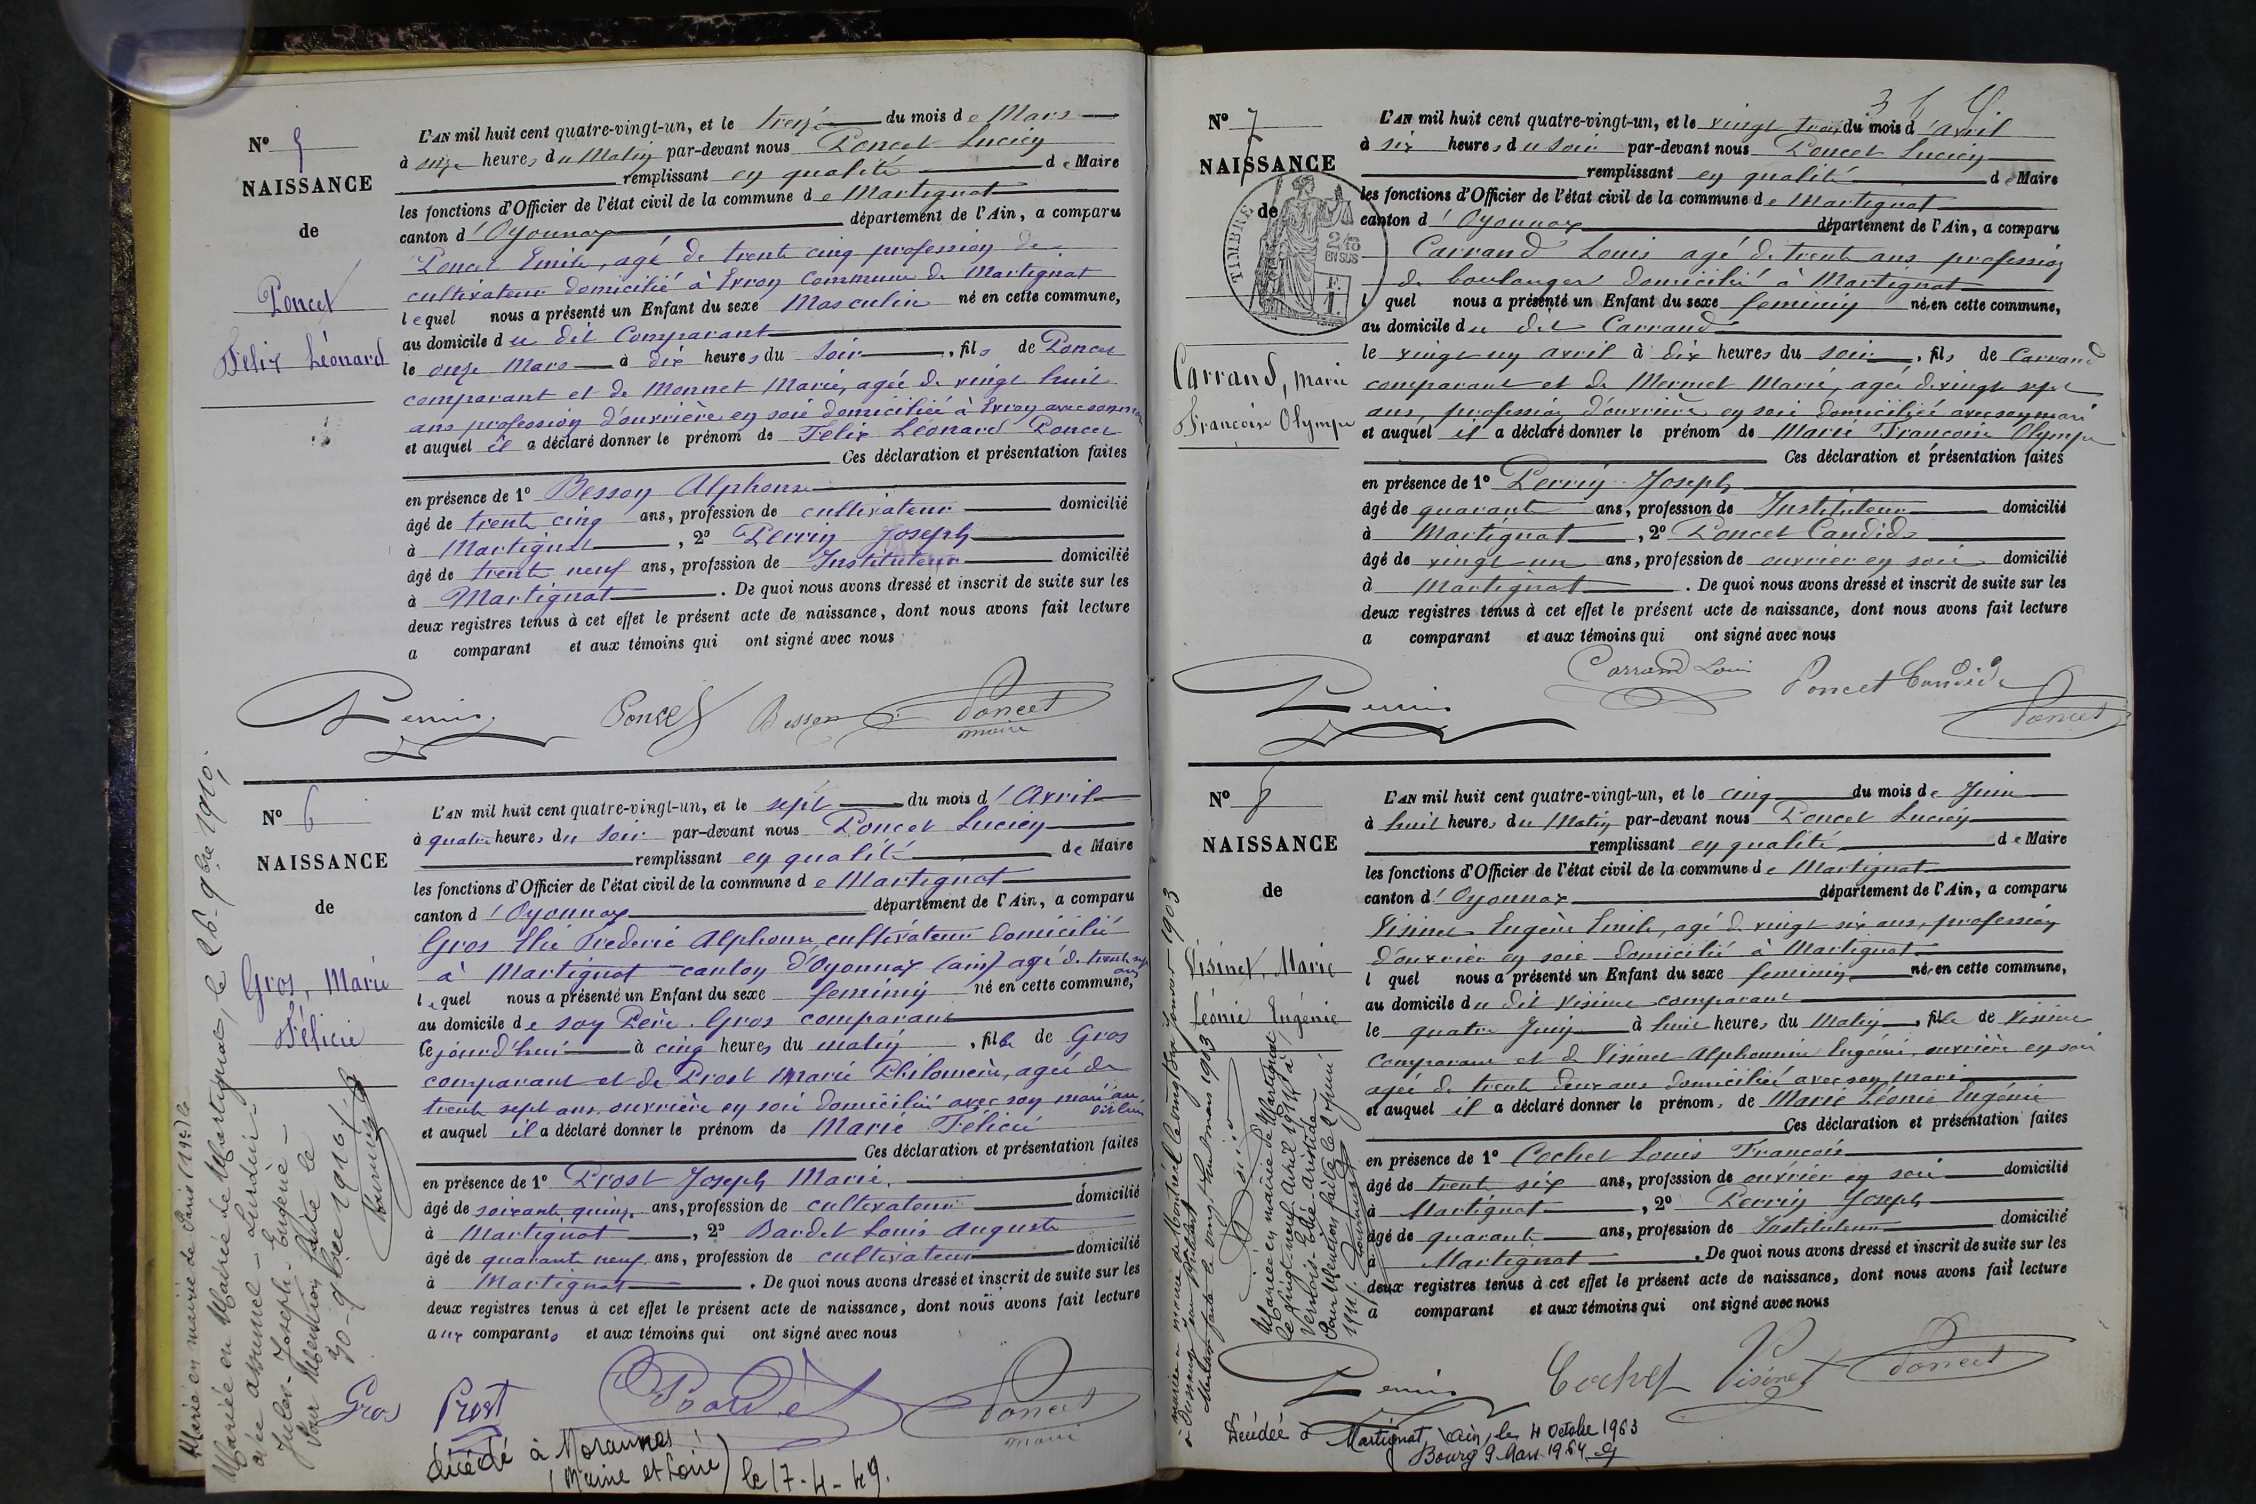 N° 5
NAISSANCE
de
Poncet
Félix Léonard
L'AN mil huit cent quatre-vingt-un, et le treize du mois de Mars
à onze heures du Matin par-devant nous Poncet Lucien
remplissant en qualité de Maire
les fonctions d'Officier de l'état civil de la commune de Martignat
canton d'Oyonnax département de l'Ain, a comparu
Poncet Emile, agé de trente cinq profession de
cultivateur domicilié à Evron Commune de Martignat
lequel nous a présenté un Enfant du sexe Masculin né en cette commune,
au domicile du dit Comparant
le onze Mars à dix heures du Soir, fils de Poncet
comparant et de Monnet Marie, agée de vingt huit
ans profession d'ouvrière en soie domiciliée à Evron avec son mari
et auquel il a déclaré donner le prénom de Félix Léonard Poncet
Ces déclaration et présentation faites
en présence de 1° Besson Alphonse
âgé de trente cinq ans, profession de cultivateur domicilié
à Martignat, 2° Perrin Joseph
âgé de trente neuf ans, profession de Instituteur domicilié
à Martignat. De quoi nous avons dressé et inscrit de suite sur les
deux registres tenus à cet effet le présent acte de naissance, dont nous avons fait lecture
a comparant et aux témoins qui ont signé avec nous
Perrin Poncet Besson Poncet
maire
N° 6
NAISSANCE
de
Gros, Marie
Félicie
L'AN mil huit cent quatre-vingt-un, et le sept du mois d'Avril
à quatre heures du Soir par-devant nous Poncet Lucien
remplissant en qualité de Maire
les fonctions d'Officier de l'état civil de la commune de Martignat
canton d'Oyonnax département de l'Ain, a comparu
Gros Elie Frederic Alphonse cultivateur domicilié
à Martignat canton d'Oyonnax (ain) agé de trente sept ans
lequel nous a présenté un Enfant du sexe féminin né en cette commune,
au domicile de son Père. Gros comparant
le jourd'hui à cinq heures du matin, fille de Gros
comparant et de Prost Marie Philomène, agée de
trente sept ans, ouvrière en soie domiciliée avec son mari au dit lieu
et auquel il a déclaré donner le prénom de Marie Félicie
Ces déclaration et présentation faites
en présence de 1° Prost Joseph Marie,
âgé de soixante quinze ans, profession de cultivateur domicilié
à Martignat, 2° Bardet Louis Auguste
âgé de quarante neuf ans, profession de cultivateur domicilié
à Martignat. De quoi nous avons dressé et inscrit de suite sur les
deux registres tenus à cet effet le présent acte de naissance, dont nous avons fait lecture
aux comparants et aux témoins qui ont signé avec nous
Gros Prost Bardet Poncet
maire
décédé à Morannes
(Maine et Loire) le 17-4-49.
Marié en mairie de Paris (19e) le
Mariée en Mairie de Martignat, le 26 9bre 1910,
Jules - Joseph - Eugène -
Pour Mention faite le
30 - 9bre 1916
N° 7
NAISSANCE
de
TIMBRE
2/10
EN SUS
F.
1.
Carrand, Marie
Françoise Olympe
L'AN mil huit cent quatre-vingt-un, et le vingt trois du mois d'avril
à six heures du soir par-devant nous Poncet Lucien
remplissant en qualité de Maire
les fonctions d'Officier de l'état civil de la commune de Martignat
canton d'Oyonnax département de l'Ain, a comparu
Carrand Louis agé de trente ans profession
de boulanger domicilié à Martignat
l quel nous a présenté un Enfant du sexe féminin né en cette commune,
au domicile du dit Carrand
le vingt un avril à dix heures du soir, fils de Carrand
comparant et de Mermet Marie, agée de vingt sept
ans, profession d'ouvrière en soie domiciliée avec son mari
et auquel il a déclaré donner le prénom de Marie Françoise Olympe
Ces déclaration et présentation faites
en présence de 1° Perrin Joseph
âgé de quarante ans, profession de Instituteur domicilié
à Martignat, 2° Poncet Candide
âgé de vingt un ans, profession de ouvrier en soie domicilié
à Martignat. De quoi nous avons dressé et inscrit de suite sur les
deux registres tenus à cet effet le présent acte de naissance, dont nous avons fait lecture
a comparant et aux témoins qui ont signé avec nous
Carrand Louis
Perrin Poncet Candide Poncet
N° 8
NAISSANCE
de
Visinet, Marie
Léonie Eugénie
L'AN mil huit cent quatre-vingt-un, et le cinq du mois de Juin
à huit heures du Matin par-devant nous Poncet Lucien
remplissant en qualité de Maire
les fonctions d'Officier de l'état civil de la commune de Martignat
canton d'Oyonnax département de l'Ain, a comparu
Visinet Eugène Emile, agé de vingt six ans, profession
d'ouvrier en soie domicilié à Martignat
l quel nous a présenté un Enfant du sexe féminin né en cette commune,
au domicile du dit Visinet comparant
le quatre Juin à huit heures du Matin, fille de Visinet
comparant et de Visinet Alphonsine Eugénie, ouvrière en soie
agée de trente deux ans domiciliée avec son mari
et auquel il a déclaré donner le prénom, de Marie Léonie Eugénie
Ces déclaration et présentation faites
en présence de 1° Cochet Louis François
âgé de trente six ans, profession de ouvrier en soie domicilié
à Martignat, 2° Perrin Joseph
âgé de quarante ans, profession de Instituteur domicilié
à Martignat. De quoi nous avons dressé et inscrit de suite sur les
deux registres tenus à cet effet le présent acte de naissance, dont nous avons fait lecture
a comparant et aux témoins qui ont signé avec nous
Perrin Cochet Visinet Poncet
Mariée en mairie de Martignat
le vingt neuf Avril 1911 à
Verdois Elie Aristide
Pour Mention faite le 2 Juin
1911.
Décédée à Martignat, (Ain, le 4 Octobre 1963
Bourg 9 Mars 1964